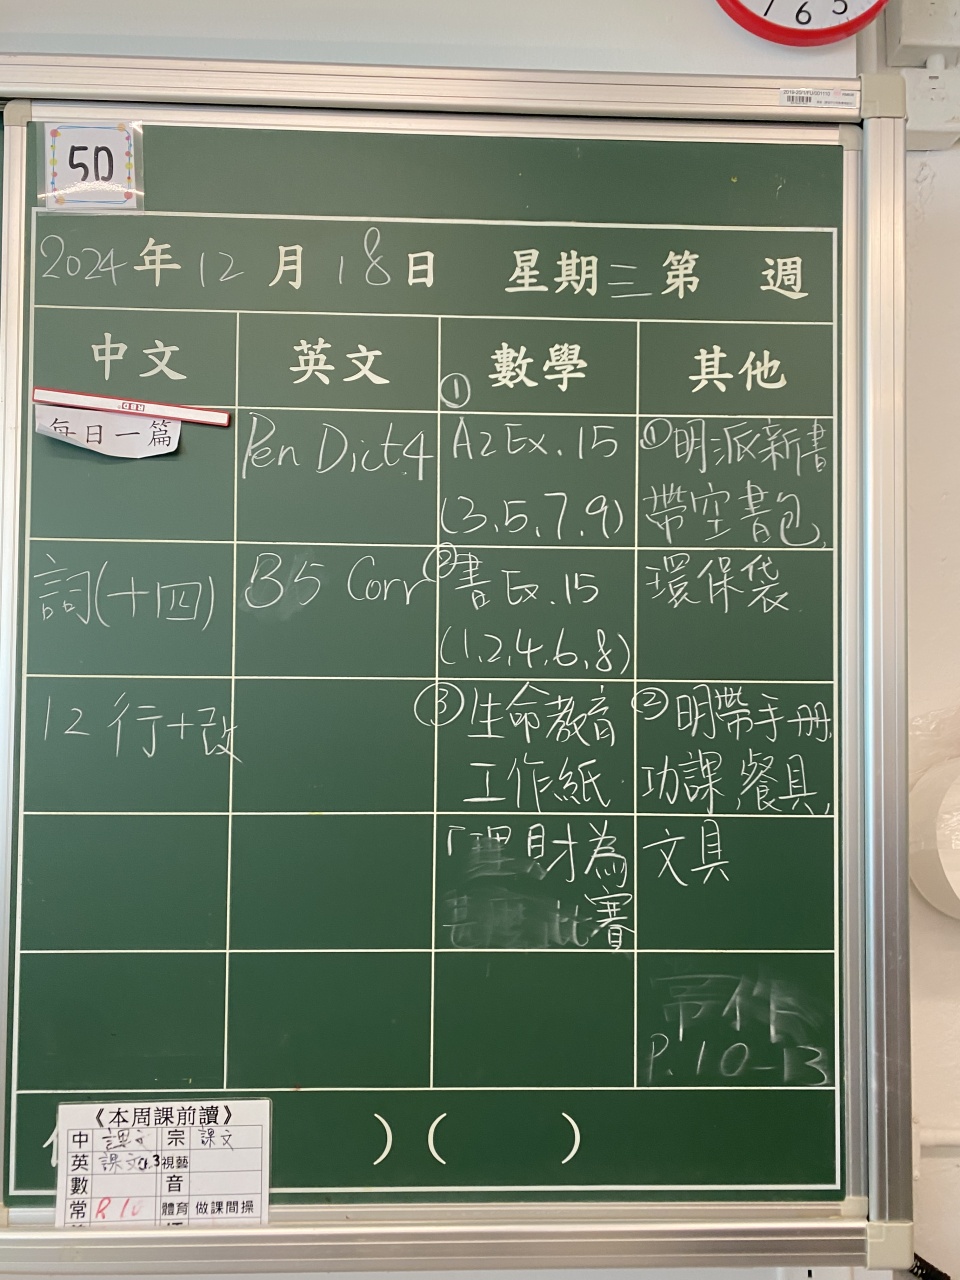 7 6 5
5D
2024年12月18日 星期三第 週
中文 英文 數學 其他
每日一篇
Pen Dict.4
① A2 Ex.15
(3,5,7,9)
①明派新書
帶空書包,
環保袋
詞(十四)
B5 Corr
②書 Ex.15
(1,2,4,6,8)
12行+改
③生命教育
工作紙
「理財為
比賽
②明帶手冊,
功課,餐具,
文具
P.10-13
( ) ( )
《本周課前讀》
中 課文 宗 課文
英 課文 視藝
數 音
常 體育 做課間操